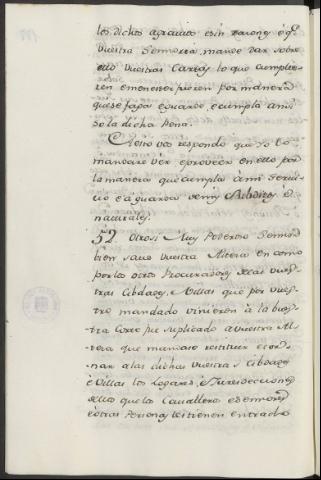 los dichos agravios e sin razones e qe.
Vuestra Sennoria mande dar sobre
ello Vuestras Cartas lo que cumplie-
ren e menester fueren por manera
que se faga e guarde e cumpla ansi
so la dicha Pena.
A esto vos respondo que Yo lo
mandare ver e proveer en ello por
la manera que cumpla a mi servi-
cio e a guarda de mis Subditos e
naturales.
52. Otrosi Muy Poderoso Sennor
bien save Vuestra Alteza en como
por los otros Procuradores de las vues-
tras Cibdades, e Villas que por vues-
tro mandado vinieron à la vues-
tra Corte fue suplicado a vuestra Al-
teza que mandase restituir e tor-
nar a las dichas vuestras Cibdades
è Villas los Logares, è Jurisdicciones
dellas que los Cavalleros e Sennores
è otras Personas les tienen entrado